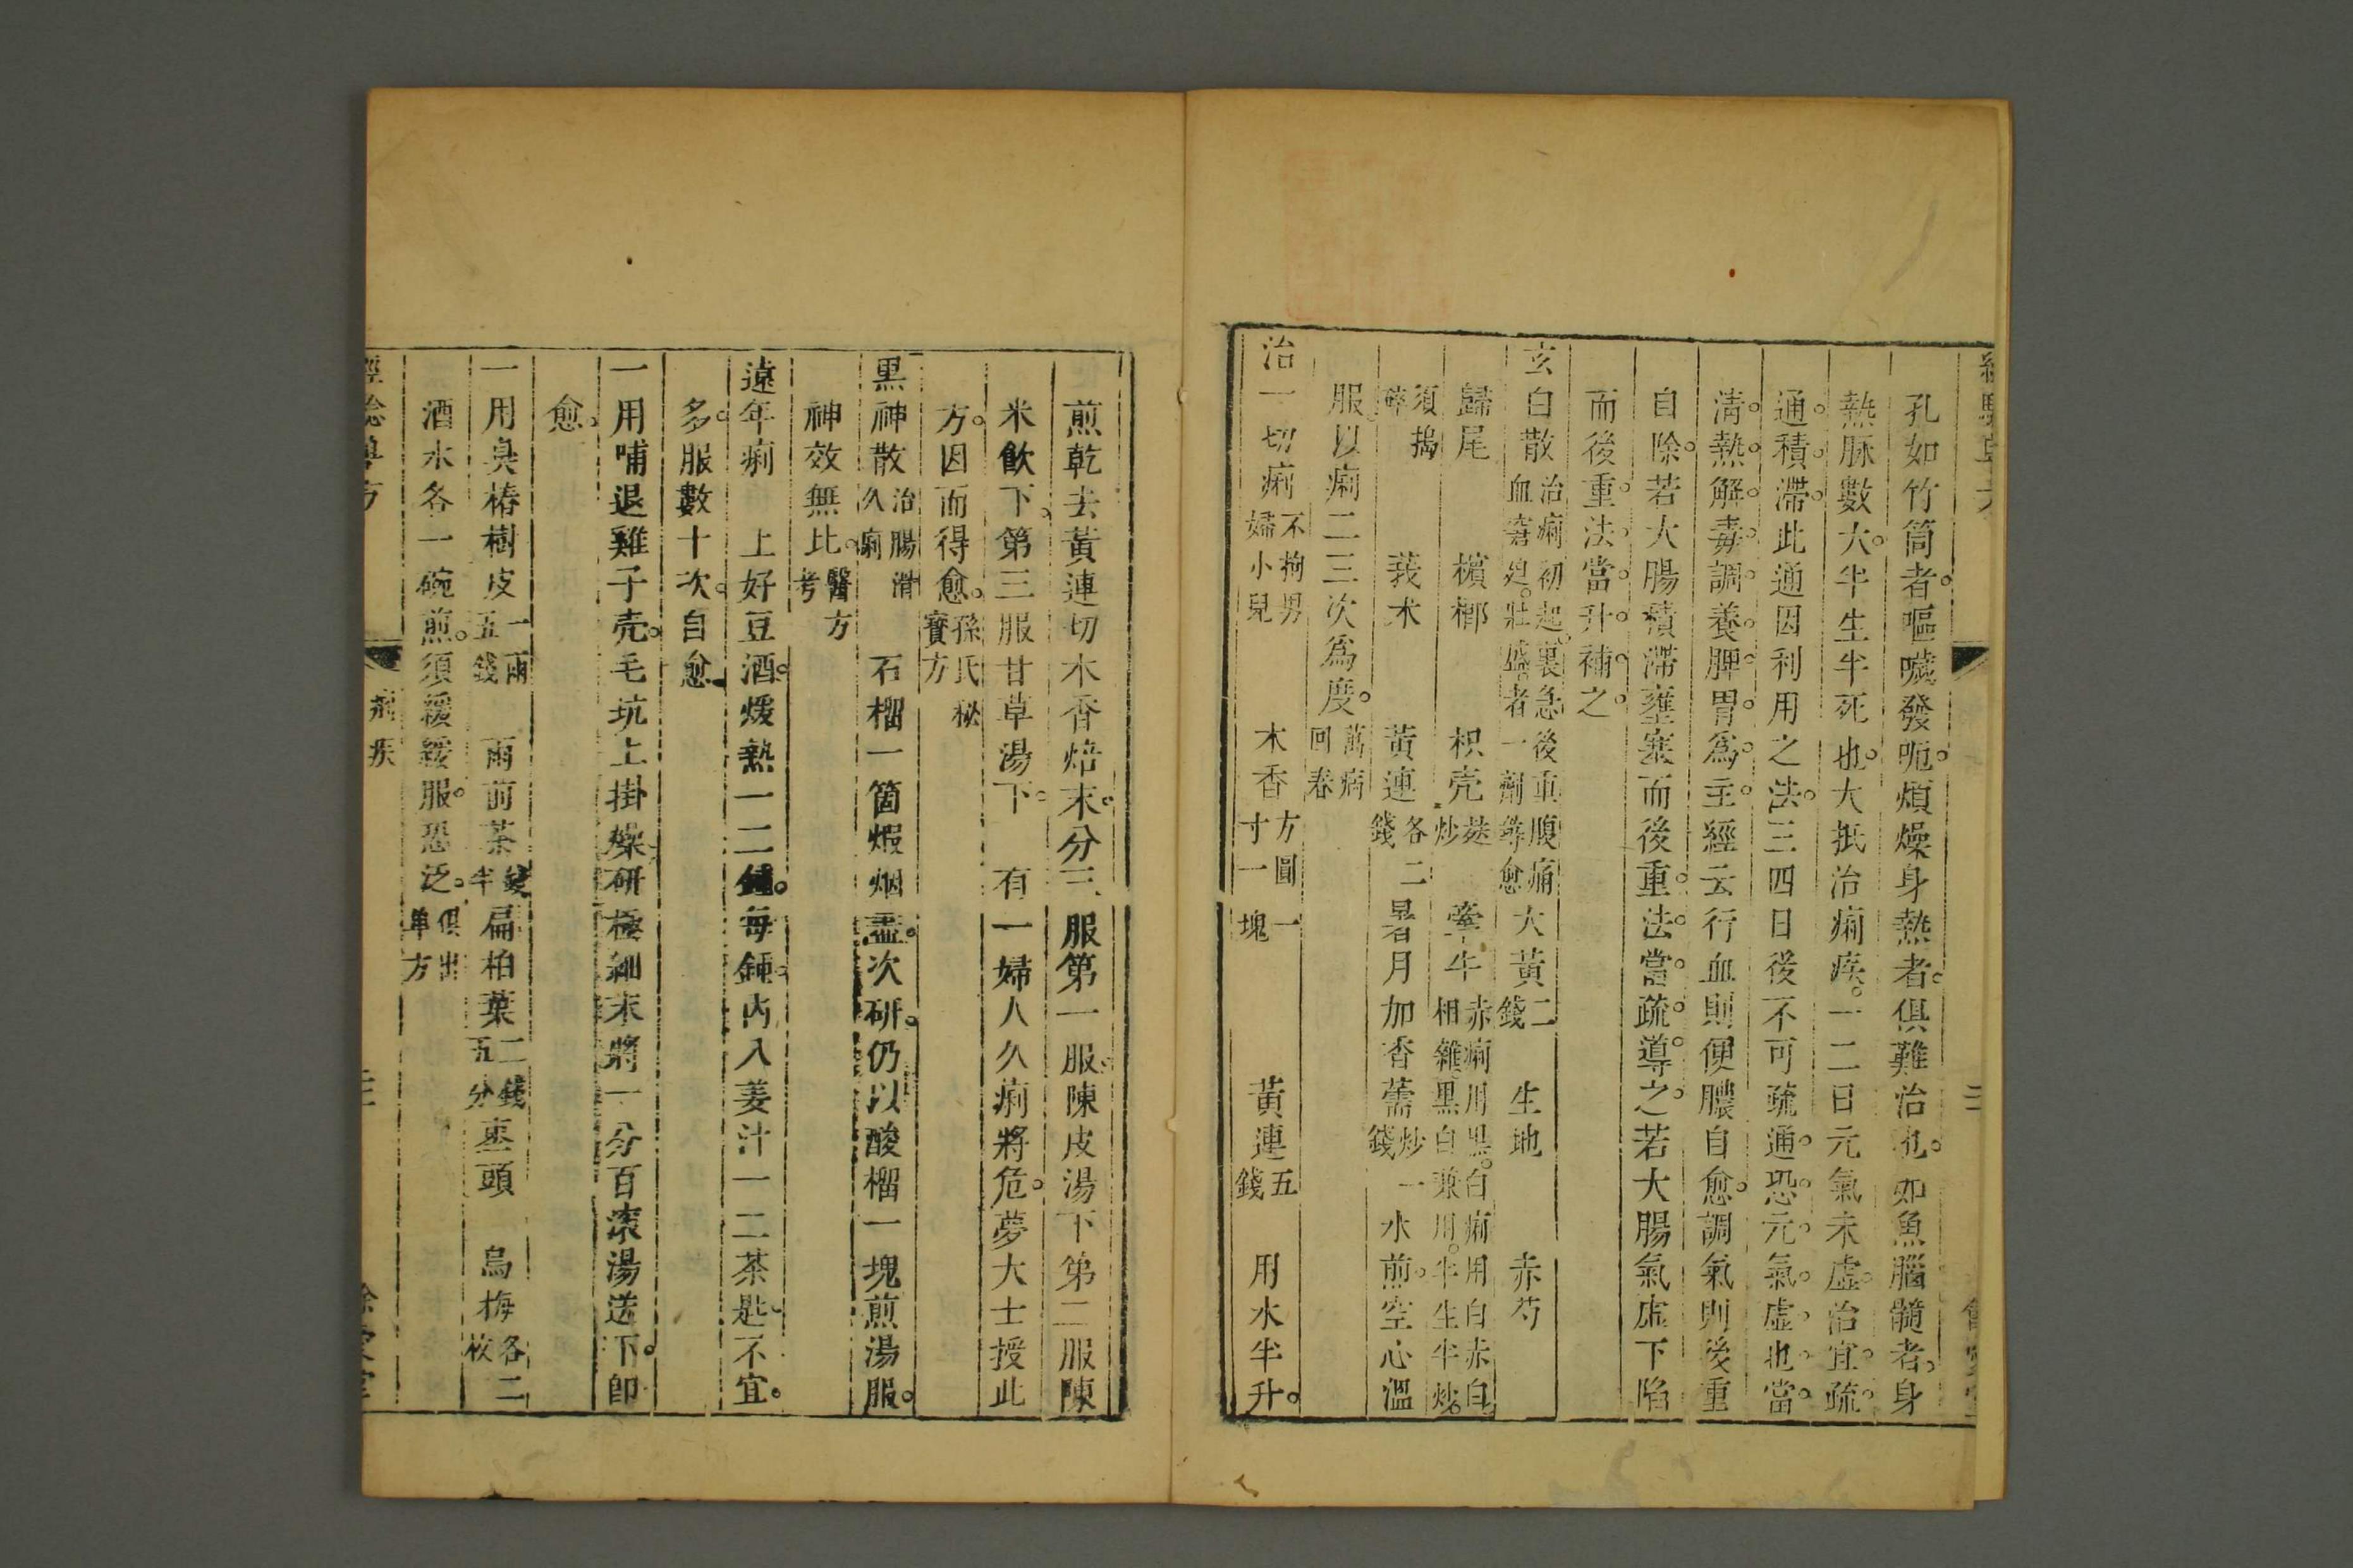 孔如竹筒者。嘔噦發呃。煩燥身熱者。俱難治也。如魚腦髓者。身
熱脉數大。半生半死也。大抵治痢疾。一二日元氣未虛。治宜疏
通。積滯。此通因利用之法。三四日後不可疏通。恐元氣虛也。當
清熱。解毒。調養脾胃爲主。經云行血則便膿自愈。調氣則後重
自除。若大腸積滯壅塞而後重。法當疏導之。若大腸氣虛下陷
而後重。法當升補之。
玄白散 治痢初起。裏急後重腹痛 血窘 壯盛者一劑 愈 大黃 二錢 生地 赤芍
歸尾 檳榔 枳壳 炒 牽牛 赤痢用黑。白痢用白赤白。相雜黑白兼用。半生半炒。
須搗碎 莪术 黃連 各二錢 暑月加香薷 炒一錢 水煎。空心溫
服。以痢二三次爲度。 萬病回春
治一切痢 不拘男婦小兒 木香 方圓一寸一塊 黃連 五錢 用水半升。
煎乾去黃連切木香焙末。分三服第一服。陳皮湯下第二服陳
米飲下。第三服甘草湯下。 有一婦人久痢將危。夢大士授此
方。因而得愈。 孫氏秘寶方
黑神散 治腸滑久痢 石榴一箇煅烟盡。次研。仍以酸榴一塊煎湯服。
神效無比。 醫方考
遠年痢 上好豆酒。煖熱一二鍾。每鍾內入姜汁一二茶匙。不宜。
多。服數十次。自愈
一用哺退雞子壳。毛坑上掛燥研極細末將一分百滚湯送下。即
愈。
一用臭椿樹皮 一兩五錢 雨前茶 半 扁柏葉 二錢五分 棗頭 烏梅 各二枚
酒水各一碗煎。須緩緩服。恐泛。 俱出单方
痢疾